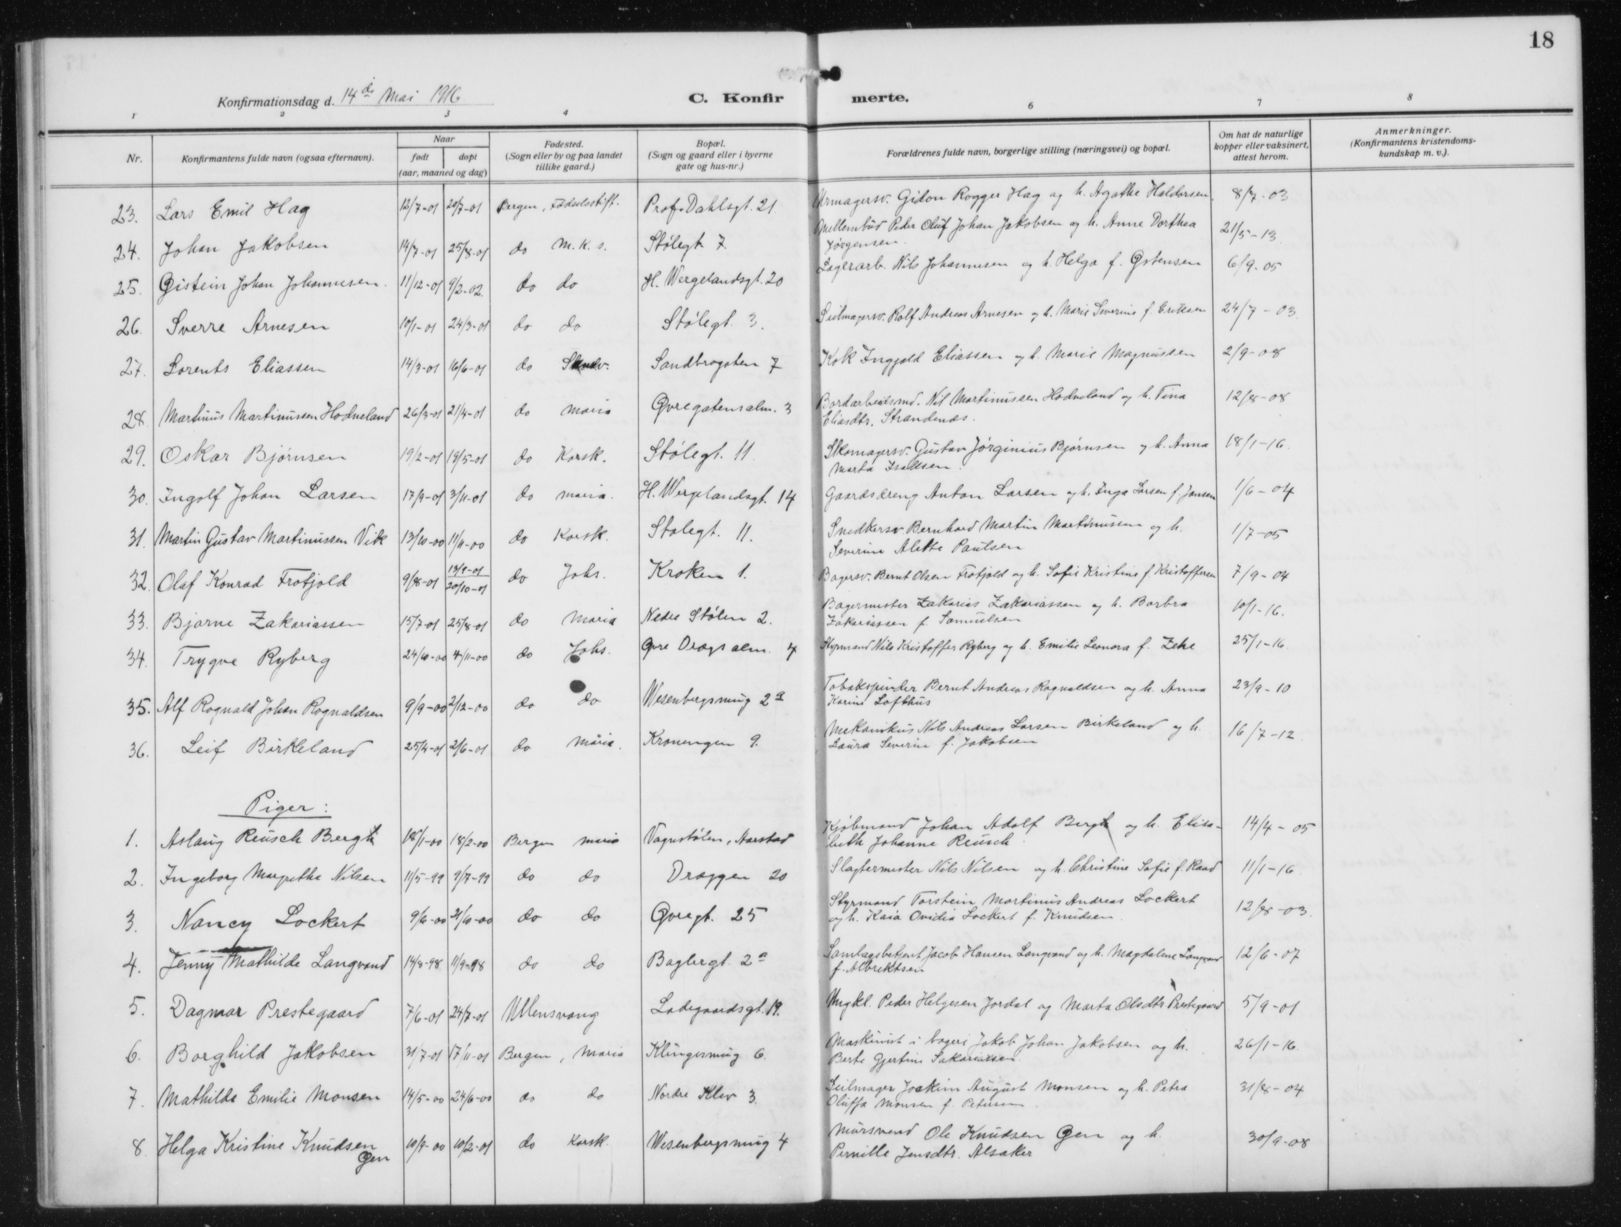 18
Konfirmationsdag d. 14de Mai 1916 C. Konfirmerte.
1 2 3 4 6 7 8
Nr. Konfirmantens fulde navn (ogsaa efternavn). Naar født døpt (aar, maaned og dag) Fødested. (Sogn eller by og paa landet tillike gaard.) Bopæl. (Sogn og gaard eller i byerne gate og hus-nr.) Forældrenes fulde navn, borgerlige stilling (næringsvei) og bopæl. Om hat de naturlige kopper eller vaksinert, attest herom. Anmerkninger. (Konfirmantens kristendoms-kundskap m. v.).
23. Lars Emil Hag 12/7-01 20/7-01 Bergen, Fødselsstift. Prof. Dahlsgt. 21 Urmagersv. Gidon Rogger Hag og h. Agathe Haldorsen 8/7-03
24. Johan Jakobsen 14/7-01 25/8-01 do M.k.s. Stølegt. 7 Mellembud Peder Oluf Johan Jakobsen og h. Anne Dorthea 21/5-13
Jørgensen
25. Øistein Johan Johannesen 11/12-01 9/2-02 do do H. Wergelandsgt. 20 Lagerarb. Nils Johannesen og h. Helga f. Østensen 6/9-05
26. Sverre Arnesen 10/1-01 24/3-01 do do Stølegt. 3. Seilmagersv. Rolf Andreas Arnesen og h. Marie Severine f. Eriksen 24/7-03
27. Lorents Eliassen 14/3-01 16/6-01 do Sandv. Sandbrogaten 7 Kok Ingjald Eliassen og h. Marie Magnussen 2/9-08
28. Martinus Martinussen Hodneland 26/3-01 21/4-01 do Maria Øvregatensalm. 3 Bordarbeidsmd. Nil Martinussen Hodneland og h. Tina 12/8-08
Eliasdtr. Strandenæs.
29. Oskar Bjørnsen 19/2-01 19/5-01 do Korsk. Stølegt. 11 Skomagersv. Gustav Jørginius Bjørnsen og h. Anna 18/1-16.
Marta Isaksen
30. Ingolf Johan Larsen 17/9-01 3/11-01 do Maria. H. Wergelandsgt. 14 Gaardsdreng Anton Larsen og h. Inga Larsen f. Jansen 1/6-04
31. Martin Gustav Martinussen Vik 13/10-00 11/11-00 do Korsk. Stølegt. 11. Snedkersv. Bernhard Martin Martinussen og h. 1/7-05
Severine Alette Paulsen
32. Olaf Konrad Frotjold 9/8-01 13/9-01 20/10-01 do Johs. Kroken 1. Bagersv. Bernt Olsen Frotjold og h. Sofie Kristine f. Kristoffersen 7/9-04
33. Bjarne Zakariassen 15/7-01 25/8-01 do Maria Nedre Stølen 2. Bagermester Zakarias Zakariassen og h. Barbra 10/1-16.
Zakariassen f. Samuelsen
34. Trygve Ryberg 24/10-00 4/11-00 do Johs. Øvre Drægs alm. 4 Styrmand Nils Kristoffer Ryberg og h. Emilie Leonora f. Zehe 25/1-16.
35. Alf Rognald Johan Rognaldsen 9/9-00 2/12-00 do do Wesenbergsmug 2a Tobakspinder Bernt Andreas Rognaldsen og h. Anna 23/9-10
Karine Lofthus
36. Leif Birkeland 25/4-01 2/6-01 do Maria. Kroneneen 9. Mekanikus Nils Andreas Larsen Birkeland og h. 16/7-12.
Laura Severine f. Jakobsen
Piger:
1. Aslaug Reusch Bergh 18/1-00 18/2-00 Bergen Maria Vognstølen, Aarstad Kjøbmand Johan Adolf Bergh og h. Elisa- 14/4-05
beth Johanne Reusch
2. Ingeborg Margrethe Nilsen 11/5-99 9/7-99 do do Dræggen 20 Slagtermester Nils Nilsen og h. Christine Sofie f. Raad 11/1-16.
3. Nancy Lockert 9/6-00 21/10-00 do do Øvregt. 25 Styrmand Torstein Martinius Andreas Lockert 12/8-03.
og h. Kaia Ovidia Lockert f. Knudsen.
4. Jenny Mathilde Langvand 14/8-98 11/9-98 do do Baglergt. 2a Samlagsbetjent Jacob Hansen Langvand og h. Magdalene Langvand 12/6-07
f. Albrektsen
5. Dagmar Prestegaard 7/6-01 24/7-01 Ullensvang Ladegaardsgt. 19. Ungkl. Peder Helgesen Jordal og Marta Olsdtr. Prestegaard 5/9-01
6. Borghild Jakobsen 31/7-01 17/11-01 Bergen, Maria Klingesmug 6. Maskinist i bageri Jakob Johan Jakobsen og h. 26/1-16.
Berte Gjertine Sakariassen.
7. Mathilde Emilie Monsen 14/5-00 24/6-00 do do Nordre Klev 3. Seilmager Joakim August Monsen og h. Petra 31/8-04
Oluffa Monsen f. Petersen.
8. Helga Kristine Knudsen Øen 10/9-00 10/2-01 do Korsk. Wesenbergsmug 4 Mursvend Ole Knudsen Øen og h. 30/9-08
Pernille Jensdtr. Alsaker